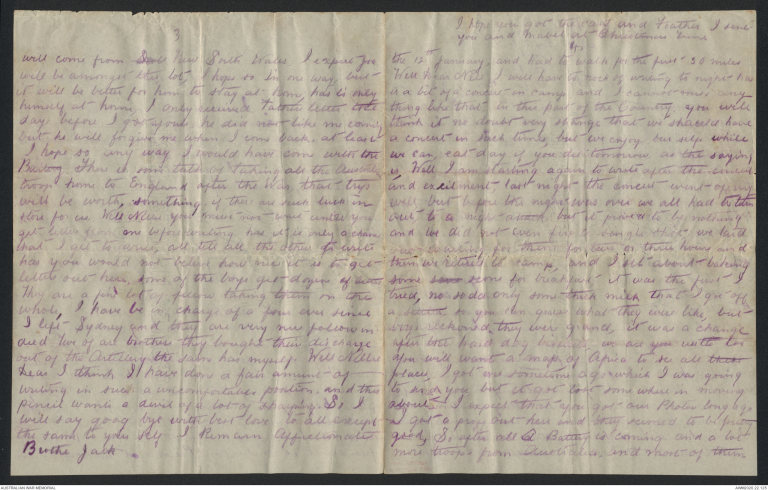 3
will come from New South Wales I expect Joe
will be amongst the lot I hope so in one way, but
it will be better for him to stay at home, has is only
himself at home, I only received Fathers letter
days before I got yours he did not like me coming
but he will forgive me when I come back. at least
I hope so any way I would have come with the
Battery. There is some talk of taking all the Australian
troops home to England after the War, that trip
will be worth something if there are such luck in
store for us Well Nellie you must not wait until you
get letter from me before writing has it is only a chance
that I get to write, all tell all the others to write
has you would not believe how nice it is to get
letter out here, some of the boys get dozens of
They are a fine lot of fellows taking them on the
whole, I have be in charge of a four ever since
I left Sydney and they are very nice fellow in
died two of are brothers they bought their discharge
out of the Artillery the same has myself. Well Nellie
Dear I think I have done a fair amount of
writing in such a uncomfortable position, and this
pencil wants a devil of a lot of sharping. So I
will say good bye with best love to all except
the same to your self I Remain Affectionate
Brother Jack.
I hope you got the card and Feather I sent
you and Mabel at Christmas time
the 12th January, and had to walk for the first 30 miles
Well Dear Nell I will have to knock of writing to night has
is a bit of a concert in camp and I cannot miss any
thing like that in this part of the Country, you will
think it no doubt very strange that we should have
a concert in such times, but we enjoy our self while
we can, eat day if you die tomorrow as the saying
is, Well I am starting again to write after the concert
and excitement last night the concert went of very
well but before the night was over we all had to turn
out to a night attack, but it proved to be nothing
and we did not even fire a single shot we laid
waiting for them for two or three hours and
then we retired to camp, and I set about baking
some scons for breakfast it was the first I
tried, no soda only some thick milk that I got off
a so you can guess what they were like, but
boys reckoned they were grand, it was a change
after the hard dog biscuits we are use to too
You will want a map of Africa to see all these
places, I got one sometime ago which I was going
to send you but it got lost some where in moving
about. I expect that you got our Photos long ago.
I got a proof out here and they seemed to be first
good, So after all A Battery is coming and a lot
more troops from Australia, and most of them
AUSTRALIAN WAR MEMORIAL